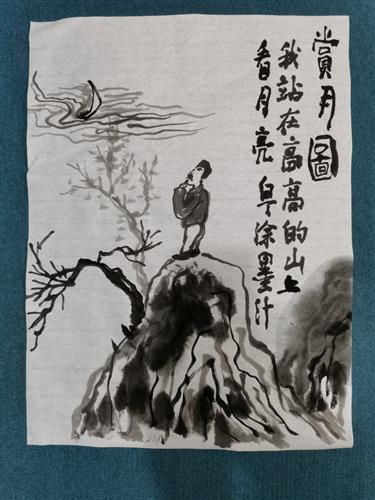 赏月圖
我站在高高的山上
看月亮 阜涂墨汁